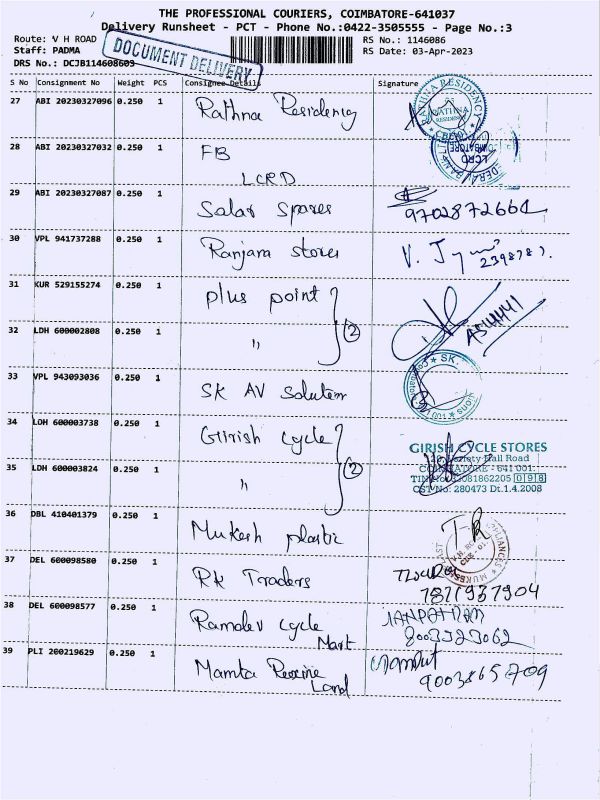 THE PROFESSIONAL COURIERS, COIMBATORE-641037
Delivery Runsheet - PCT - Phone No.:0422-3505555 - Page No.:3
Route: V H ROAD RS No.: 1146086
Staff: PADMA RS Date: 03-Apr-2023
DRS No.: DCJB114608603
DOCUMENT DELIVERY
S No Consignment No Weight PCS Consignee Details Signature
27 ABI 20230327096 0.250 1 Rathna Residency
28 ABI 20230327032 0.250 1 FB
LCRD
29 ABI 20230327087 0.250 1 Salar Spares
9702872661
30 VPL 941737288 0.250 1 Ranjana stores
31 KUR 529155274 0.250 1 plus point
32 LDH 600002808 0.250 1 " 2
33 VPL 943093036 0.250 1 SK AV Solution
34 LDH 600003738 0.250 1 Girish cycle
GIRISH CYCLE STORES
35 LDH 600003824 0.250 1 " 2
COIMBATORE - 641 001.
CST No: 280473 Dt.1.4.2008
36 DBL 410401379 0.250 1 Mukesh plastic
TR
37 DEL 600098580 0.250 1 RK Traders
7871937904
38 DEL 600098577 0.250 1 Ramdev cycle
Mart
39 PLI 200219629 0.250 1 Mamta Rexine
Land
9003865709